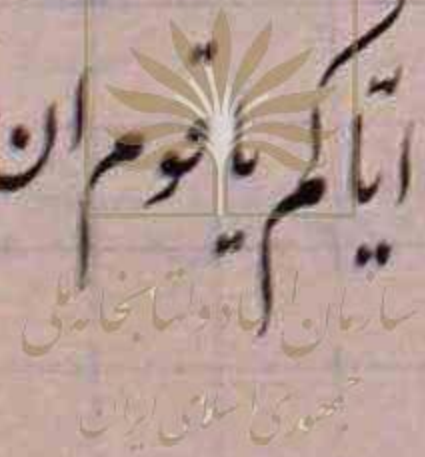 ایّاکم یا قوم ان
سازمان اسناد و کتابخانه ملی
جمهوری اسلامی ایران